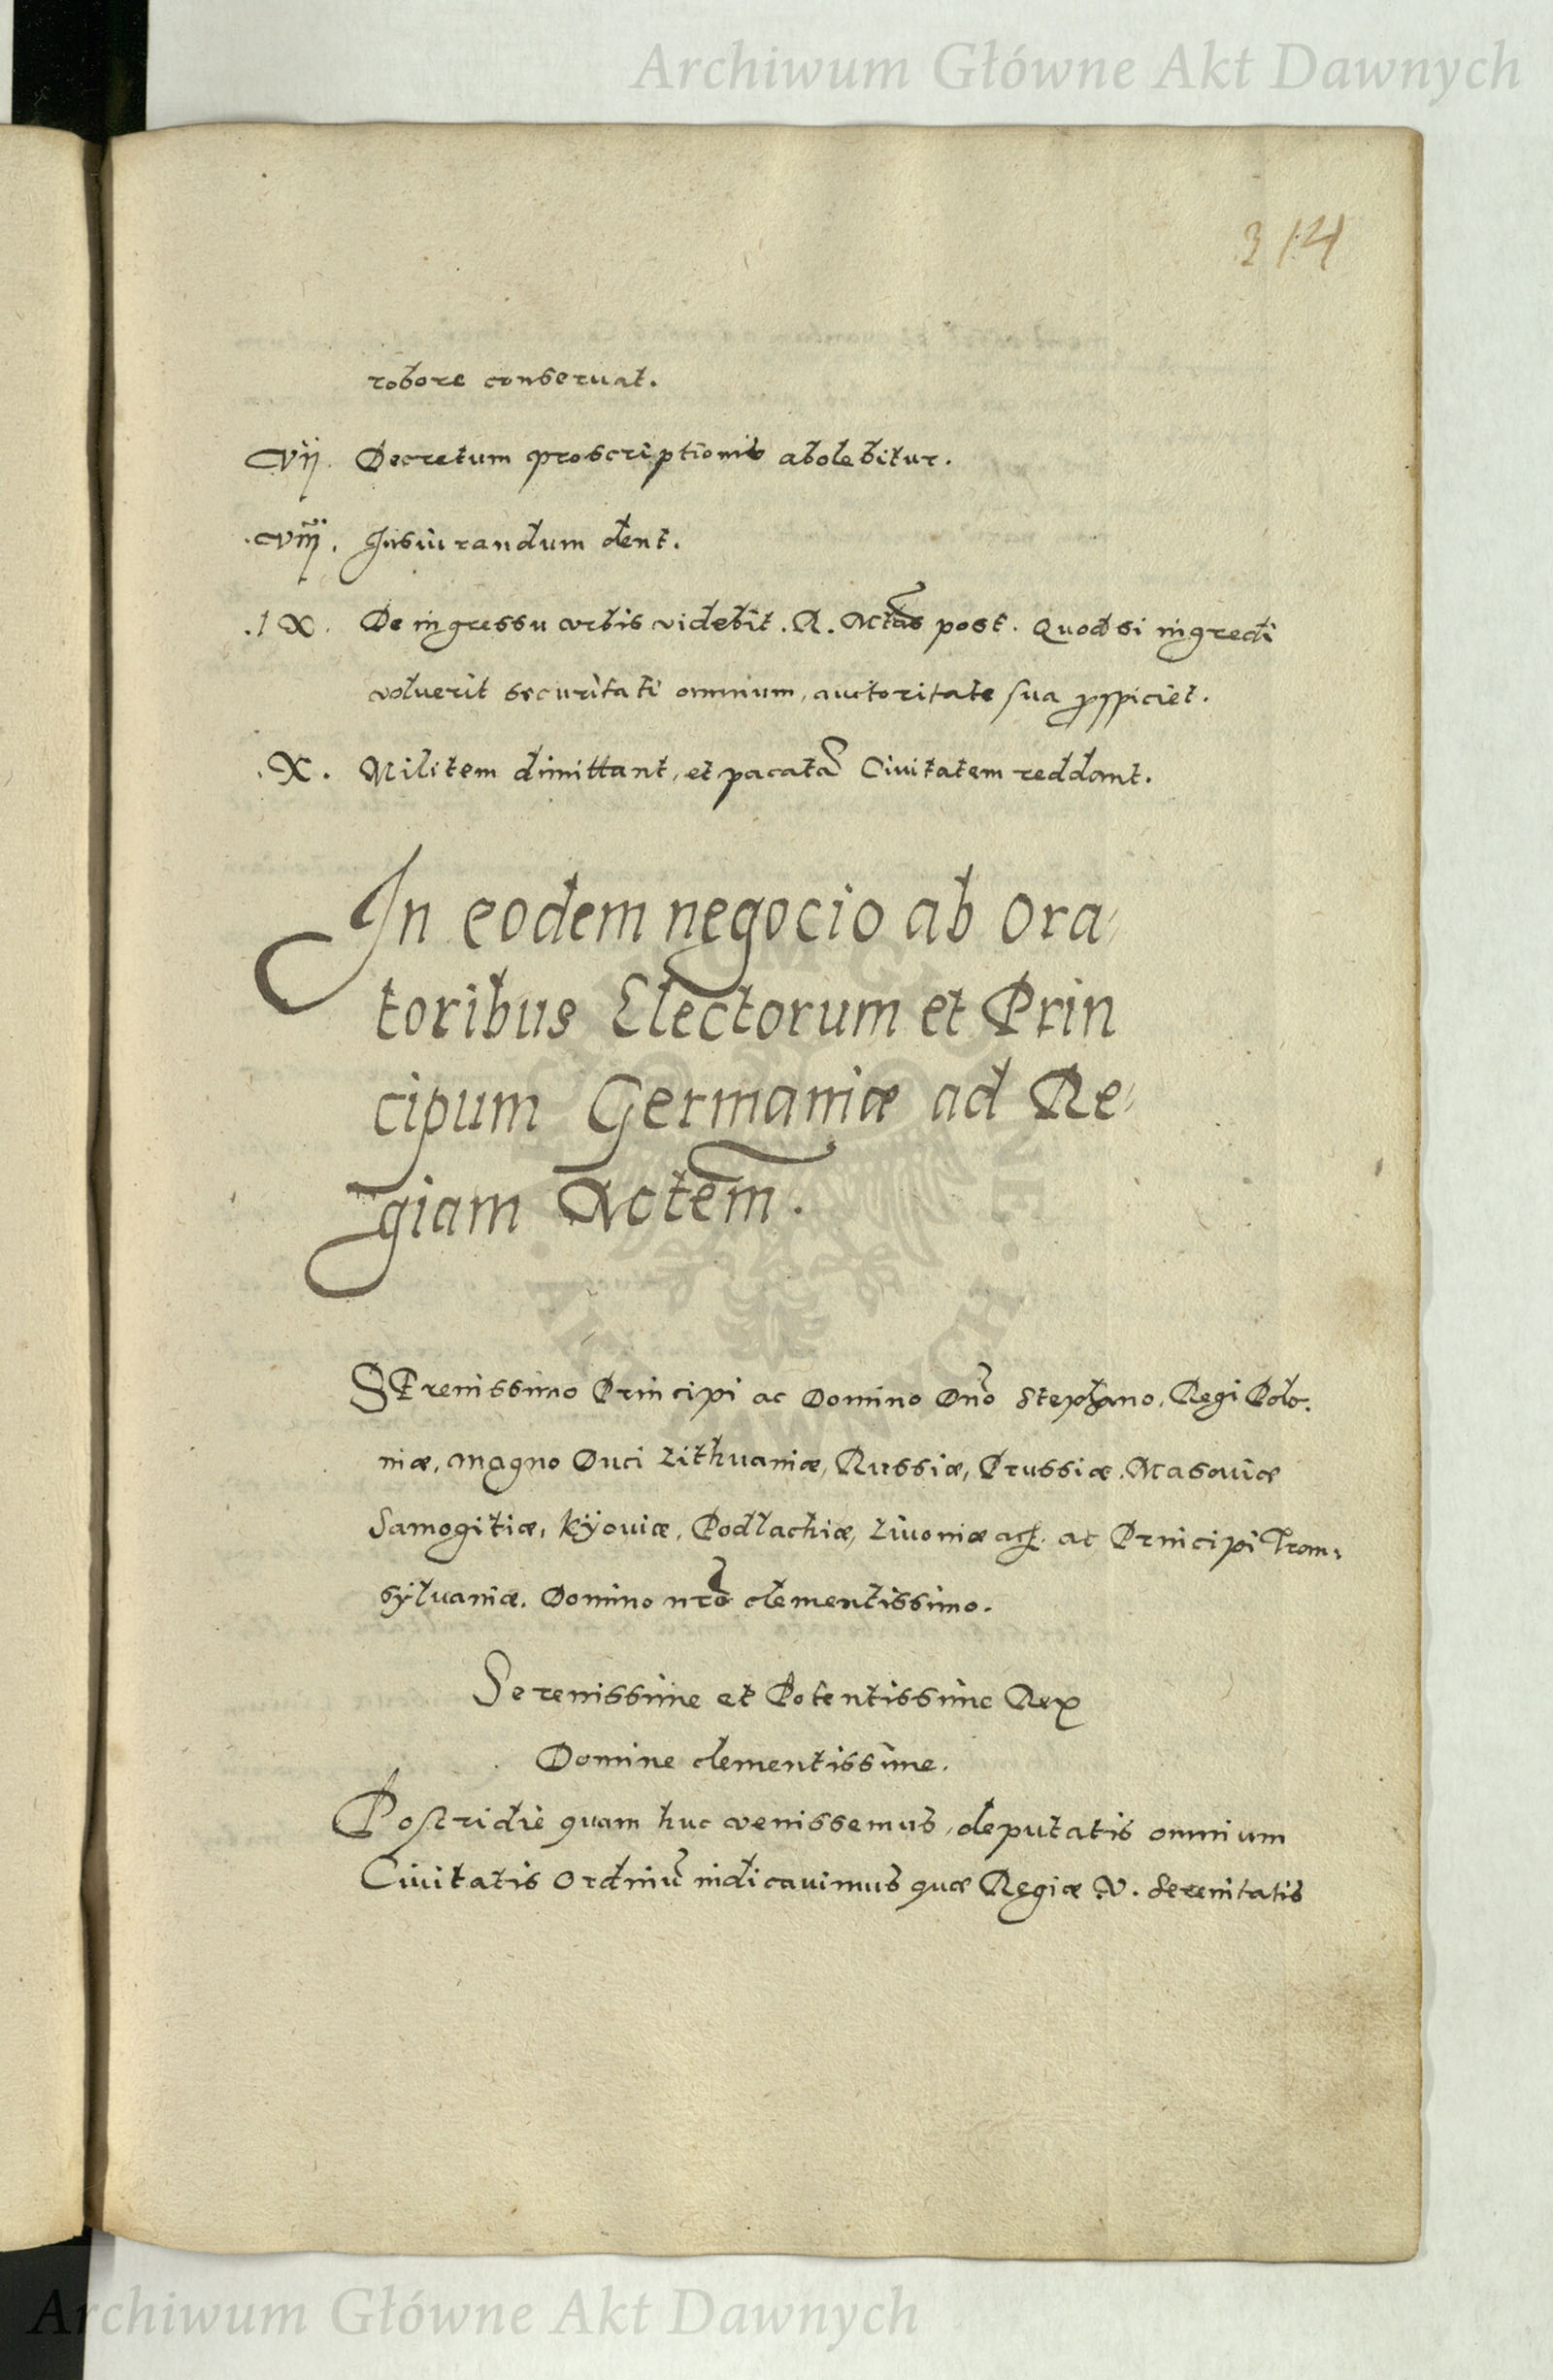 Archiwum Główne Akt Dawnych
314
robore conseruat.
Vij. Decretum proscriptionis abolebitur.
.Viij. Iusiurandum dent.
.IX. De ingressu vrbis videbit. R. Mtas post. Quod si ingredi
voluerit securitati omnium, auctoritate sua prospiciet.
.X. Militem dimittant, et pacatã Ciuitatem reddant.
In eodem negocio ab Ora,
toribus Electorum et Prin
cipum Germaniæ ad Re,
giam Mtem.
SErenissimo Principi ac Domino Dño Stephano, Regi Polo.
niæ, Magno Duci Lithuaniæ, Russiæ, Prussiæ, Masouiæ
Samogitiæ, Kÿouiæ, Podlachiæ, Liuoniæ ac Principi Tran,
syluaniæ. Domino nrõ clementissimo.
Serenissime et Potentissime Rex
Domine clementissime.
Postridie quam huc venissemus, deputatis omnium
Ciuitatis Ordinũ indicauimus quæ Regiæ V. Serenitatis
ARCHIWUM GŁÓWNE
AKT DAWNYCH
Archiwum Główne Akt Dawnych